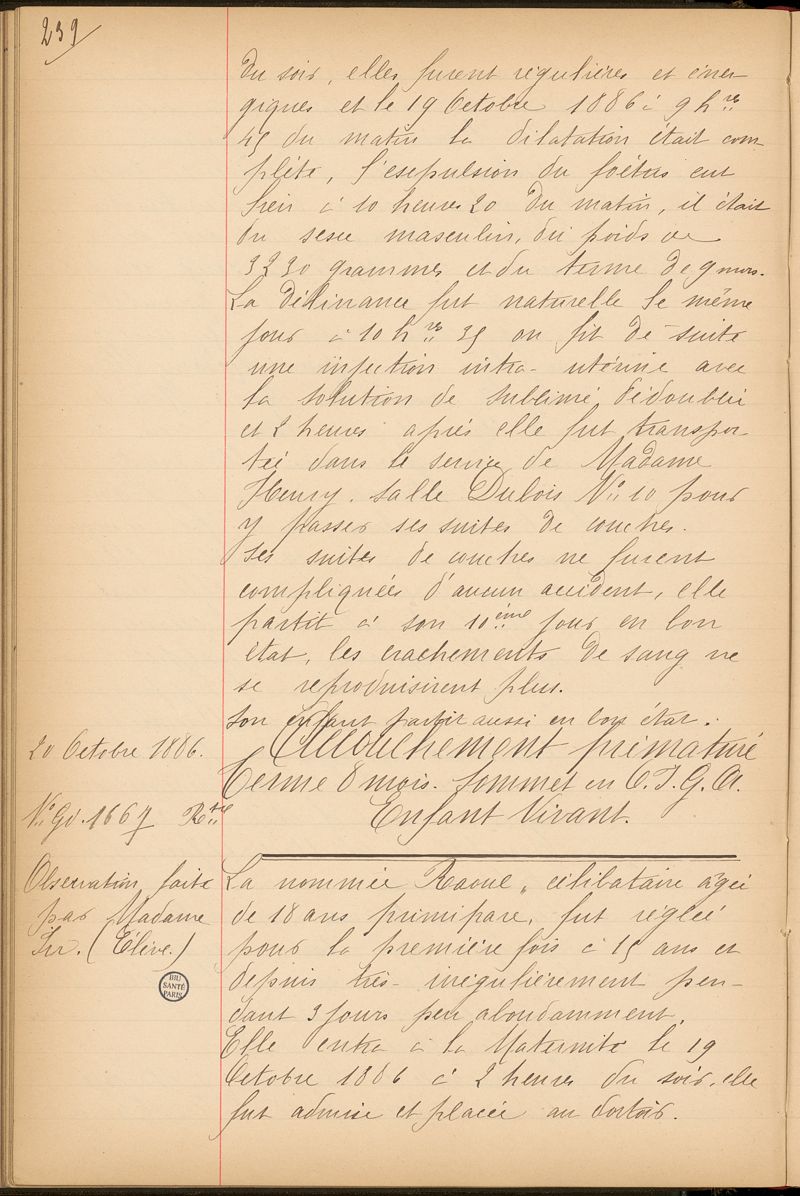 239
du soir, elles furent régulières et éner-
giques et le 19 Octobre 1886 à 9 h res
45 du matin la dilatation était com-
plète, l'expulsion du foetus eut
lieu à 10 heures 20 du matin, il était
du sexe masculin, du poids de
3230 grammes et du terme de 9 mois.
La Délivrance fut naturelle le même
jour à 10 h res 35 on fit de suite
une injection intra-utérine avec
la solution de sublimé dédoublée
et 2 heures après elle fut transpor-
tée dans le service de Madame
Henry. Salle Dubois No 10 pour
y passer ses suites de couches.
Ses suites de couches ne furent
compliquées d'aucun accident, elle
partit à son 10 ème jour en bon
état, les crachements de sang ne
se reproduisirent plus.
Son enfant partit aussi en bon état.
20 Octobre 1886.
Accouchement prématuré
Terme 8 mois. Sommet en O.I.G.A.
No Gd. 1667
Enfant Vivant.
Observation faite
par Madame
(Élève.)
La nommée Raoul, célibataire âgée
de 18 ans primipare, fut réglée
pour la première fois à 15 ans et
depuis très-irrégulièrement pen-
dant 3 jours peu abondamment.
Elle entra à la Maternité le 19
Octobre 1886 à 2 heures du soir, elle
fut admise et placée au dortoir.
BIU
SANTÉ
PARIS